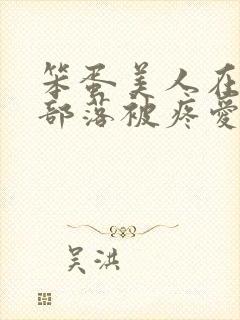 笨蛋美人在
部落被疼爱
吴洪